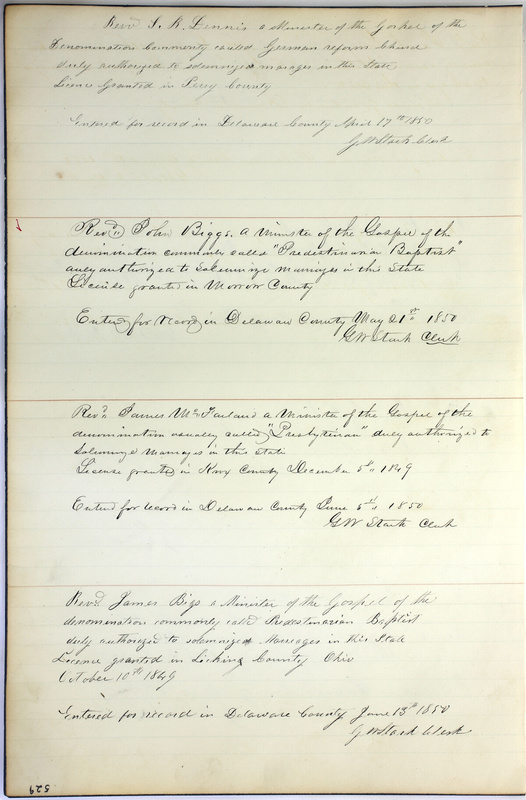 Revd S. K. Dennis a Minister of the Gospel of the
Denomination Commonly called German reform Church
duly authorized to solemnize marages in this State
Licence Granted in Perry County
Entered for record in Delaware County April 17th 1850
G W Stark Clerk
Revd John Biggs. a Minister of the Gospel of the
denomination commonly called "Predestinarian Baptist"
duly authorized to Solemnize Marriages in this State
License granted in Morrow County
Entered for record in Delaware County May 21st 1850
G W Stark Clerk
Revd James McFarland a Minister of the Gospel of the
denomination usually called "Presbyterian" duly authorized to
Solemnize Marriages in this State
License granted in Knox County December 5th 1849
Entered for record in Delaware County June 5th 1850
G W Stark Clerk
Revd James Bigs a Minister of the Gospel of the
denomination commonly calld Predestinarian Baptist
duly authorized to solemnize Marriages in this State
Licence granted in Licking County Ohio
October 10th 1849
Entered for record in Delaware County June 13th 1850
G W Stark Clerk
529